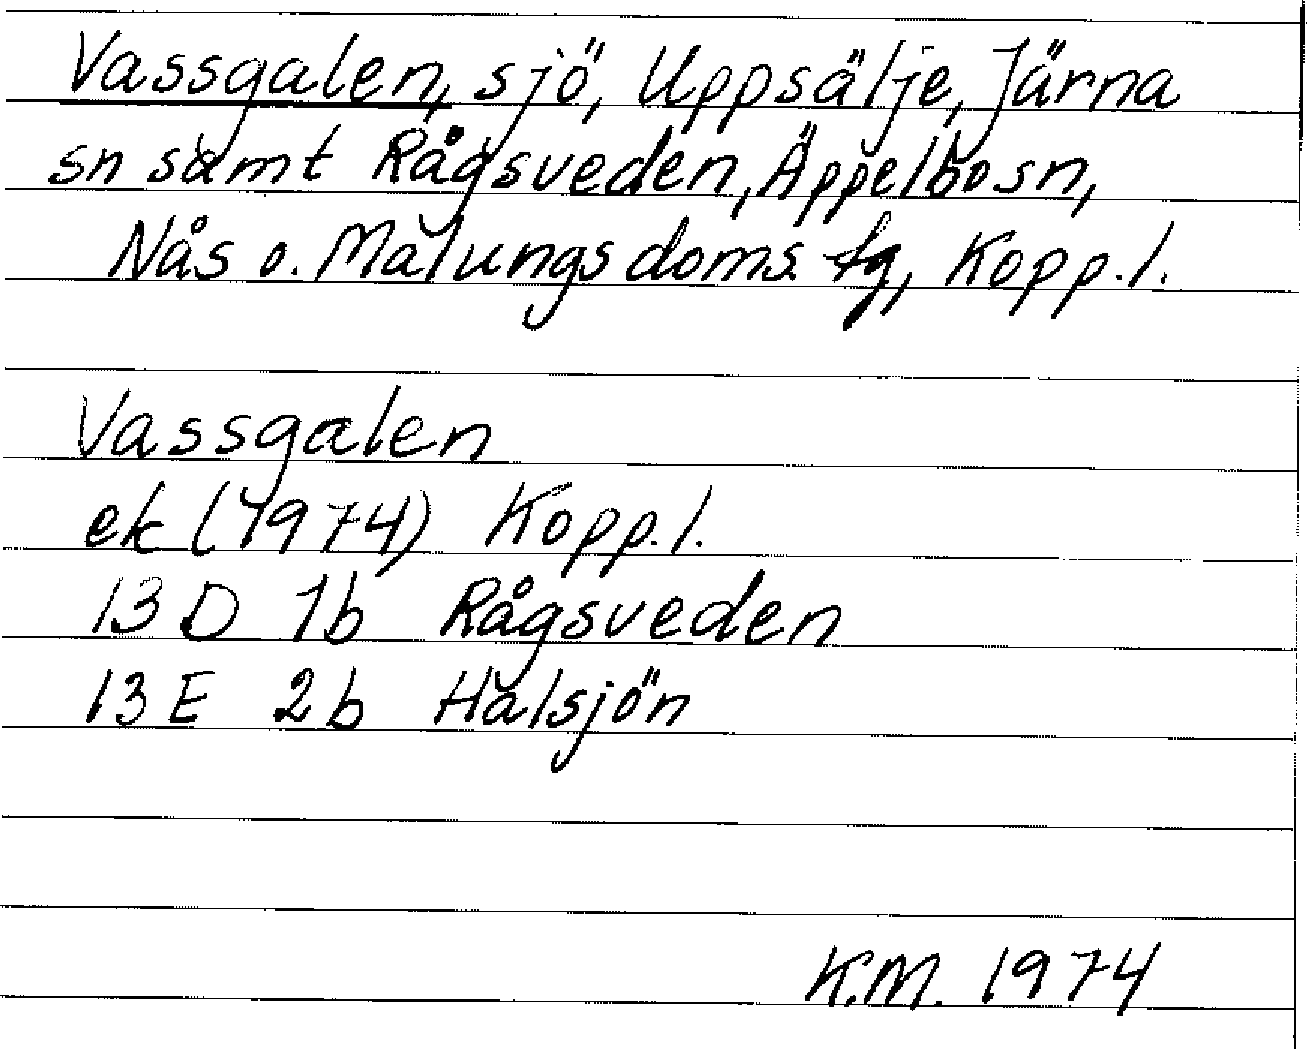 Vassgalen, sjö, Uppsälje, Järna
sn samt Rågsveden, Äppelbo sn,
Nås o. Malungs doms. fg, Kopp.l.
Vassgalen
ek (1974) Kopp.l.
13 D 1b Rågsveden
13 E 2b Halsjön
K.M. 1974